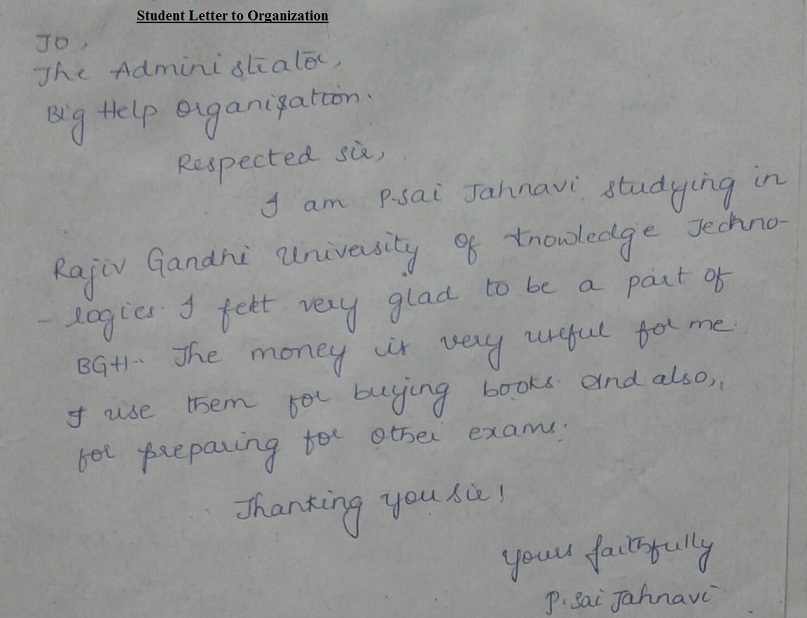 Student Letter to Organization
To,
The Administrator,
Big Help Organization.
Respected sir,
I am P.Sai Jahnavi studying in
Rajiv Gandhi University of knowledge Techno-
-logies I felt very glad to be a part of
BGH.. The money is very useful for me.
I use them for buying books. And also,,
for preparing for other exams.
Thanking you sir!
yours faithfully
P.Sai Jahnavi